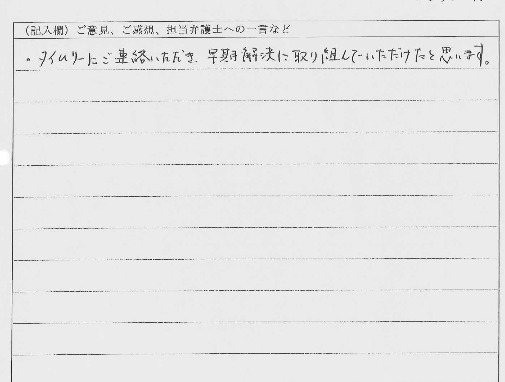 （記入欄）ご意見、ご感想、担当弁護士への一言など
・タイムリーにご連絡いただき、早期解決に取り組んでいただけたと思います。